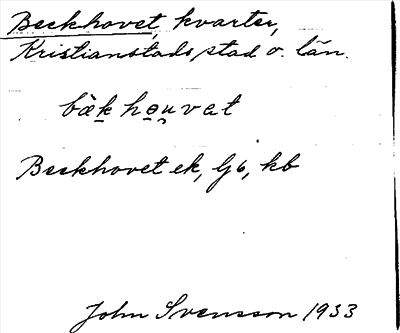 Beckhovet, kvarter,
Kristianstads stad o. län.
bäk họu̯vat
Beckhovet ek, lj6, kb
John Svensson 1933